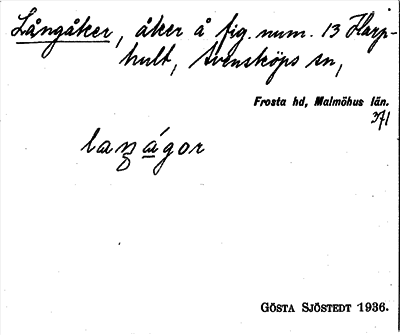 Långåker, åker å fig. num. 13 Harp-
hult, Svensköps sn,
Frosta hd, Malmöhus län.
371
laŋágor
GÖSTA SJÖSTEDT 1936.